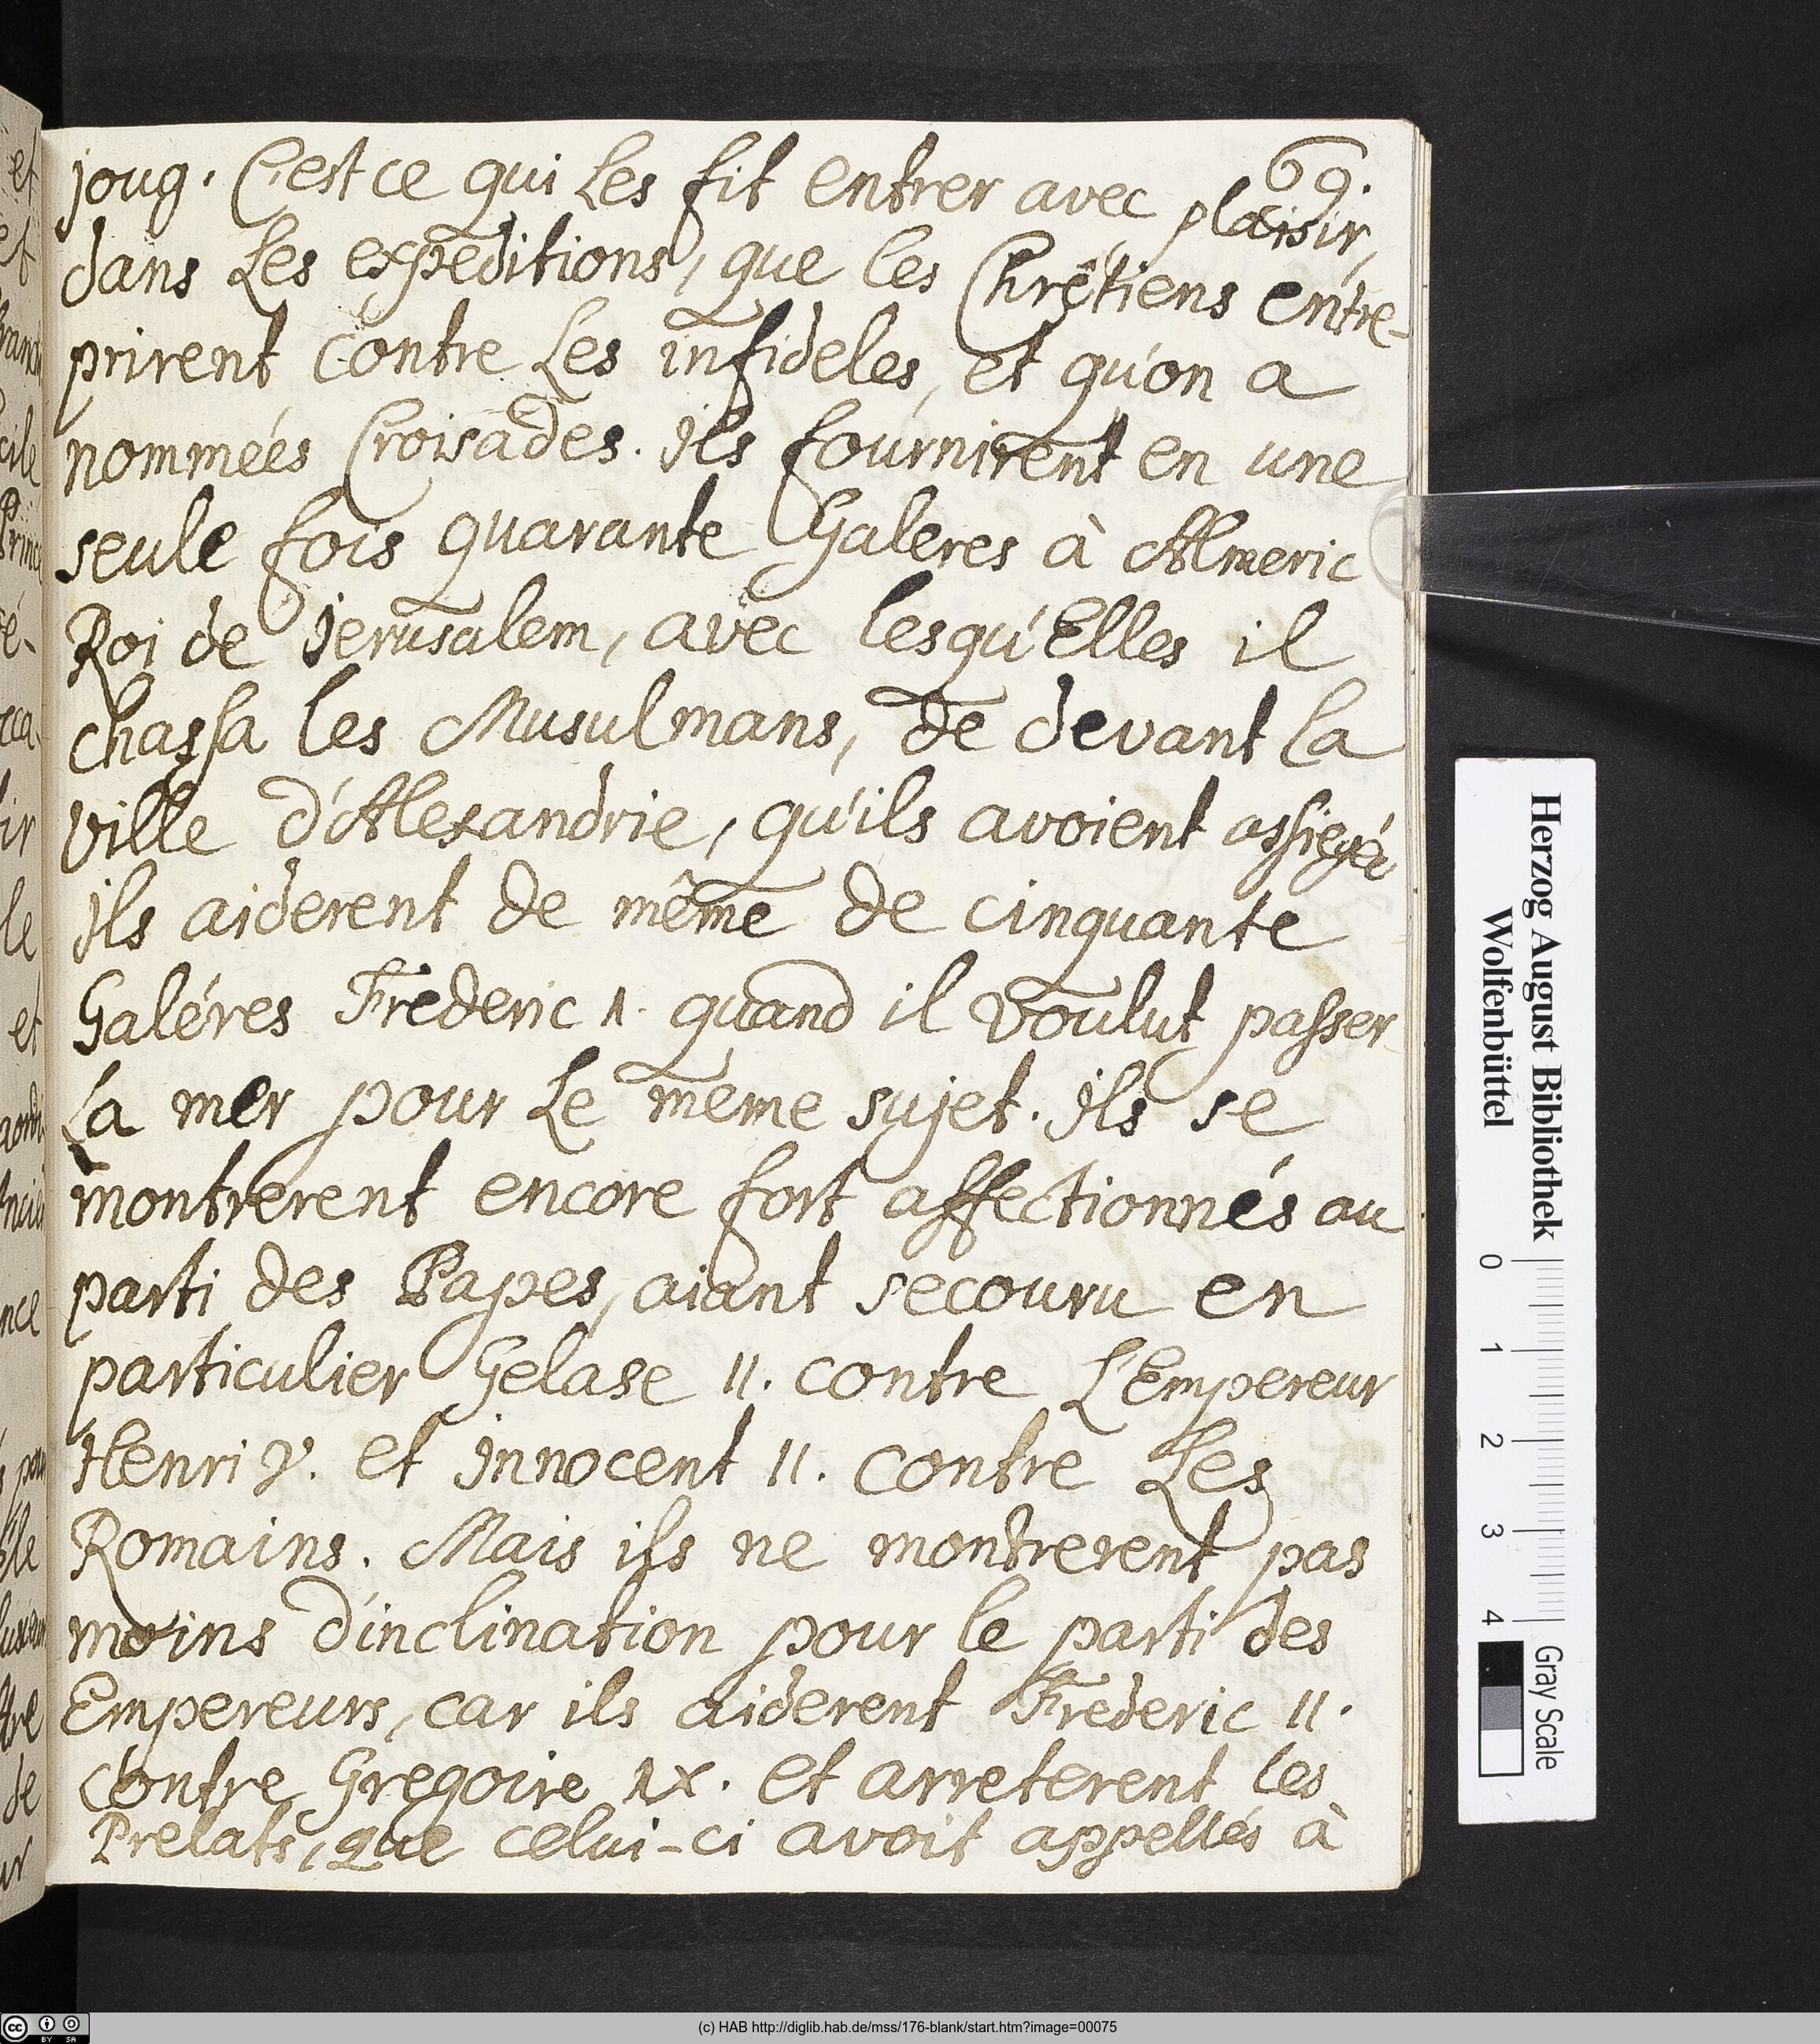 69.
joug. C'est ce qui les fit entrer avec plaisir,
dans les expeditions, que les Chrêtiens entre-
prirent contre les infideles, et qu'on a
nommées Croisades. Ils fournirent en une
seule fois quarante Galeres à Almeric
Roi de Jerusalem, avec lesqu'Elles il
chassa les Musulmans, de devant la
ville d'Alexandrie, qu'ils avoient assiegée
ils aiderent de même de cinquante
Galéres Frederic 1. quand il voulut passer
la mer pour le même sujet. Ils se
montrerent encore fort affectionnés au
parti des Papes, aiant secouru en
particulier Gelase II. contre L'Empereur
Henri V. et Innocent II. contre Les
Romains. Mais ils ne montrerent pas
moins d'inclination pour le parti des
Empereurs, car ils aiderent Frederic II.
contre Gregoire IX. et arreterent les
Prelats, que celui-ci avoit appellés à
Herzog August Bibliothek
Wolfenbüttel
0 1 2 3 4
Gray Scale
(c) HAB http://diglib.hab.de/mss/176-blank/start.htm?image=00075